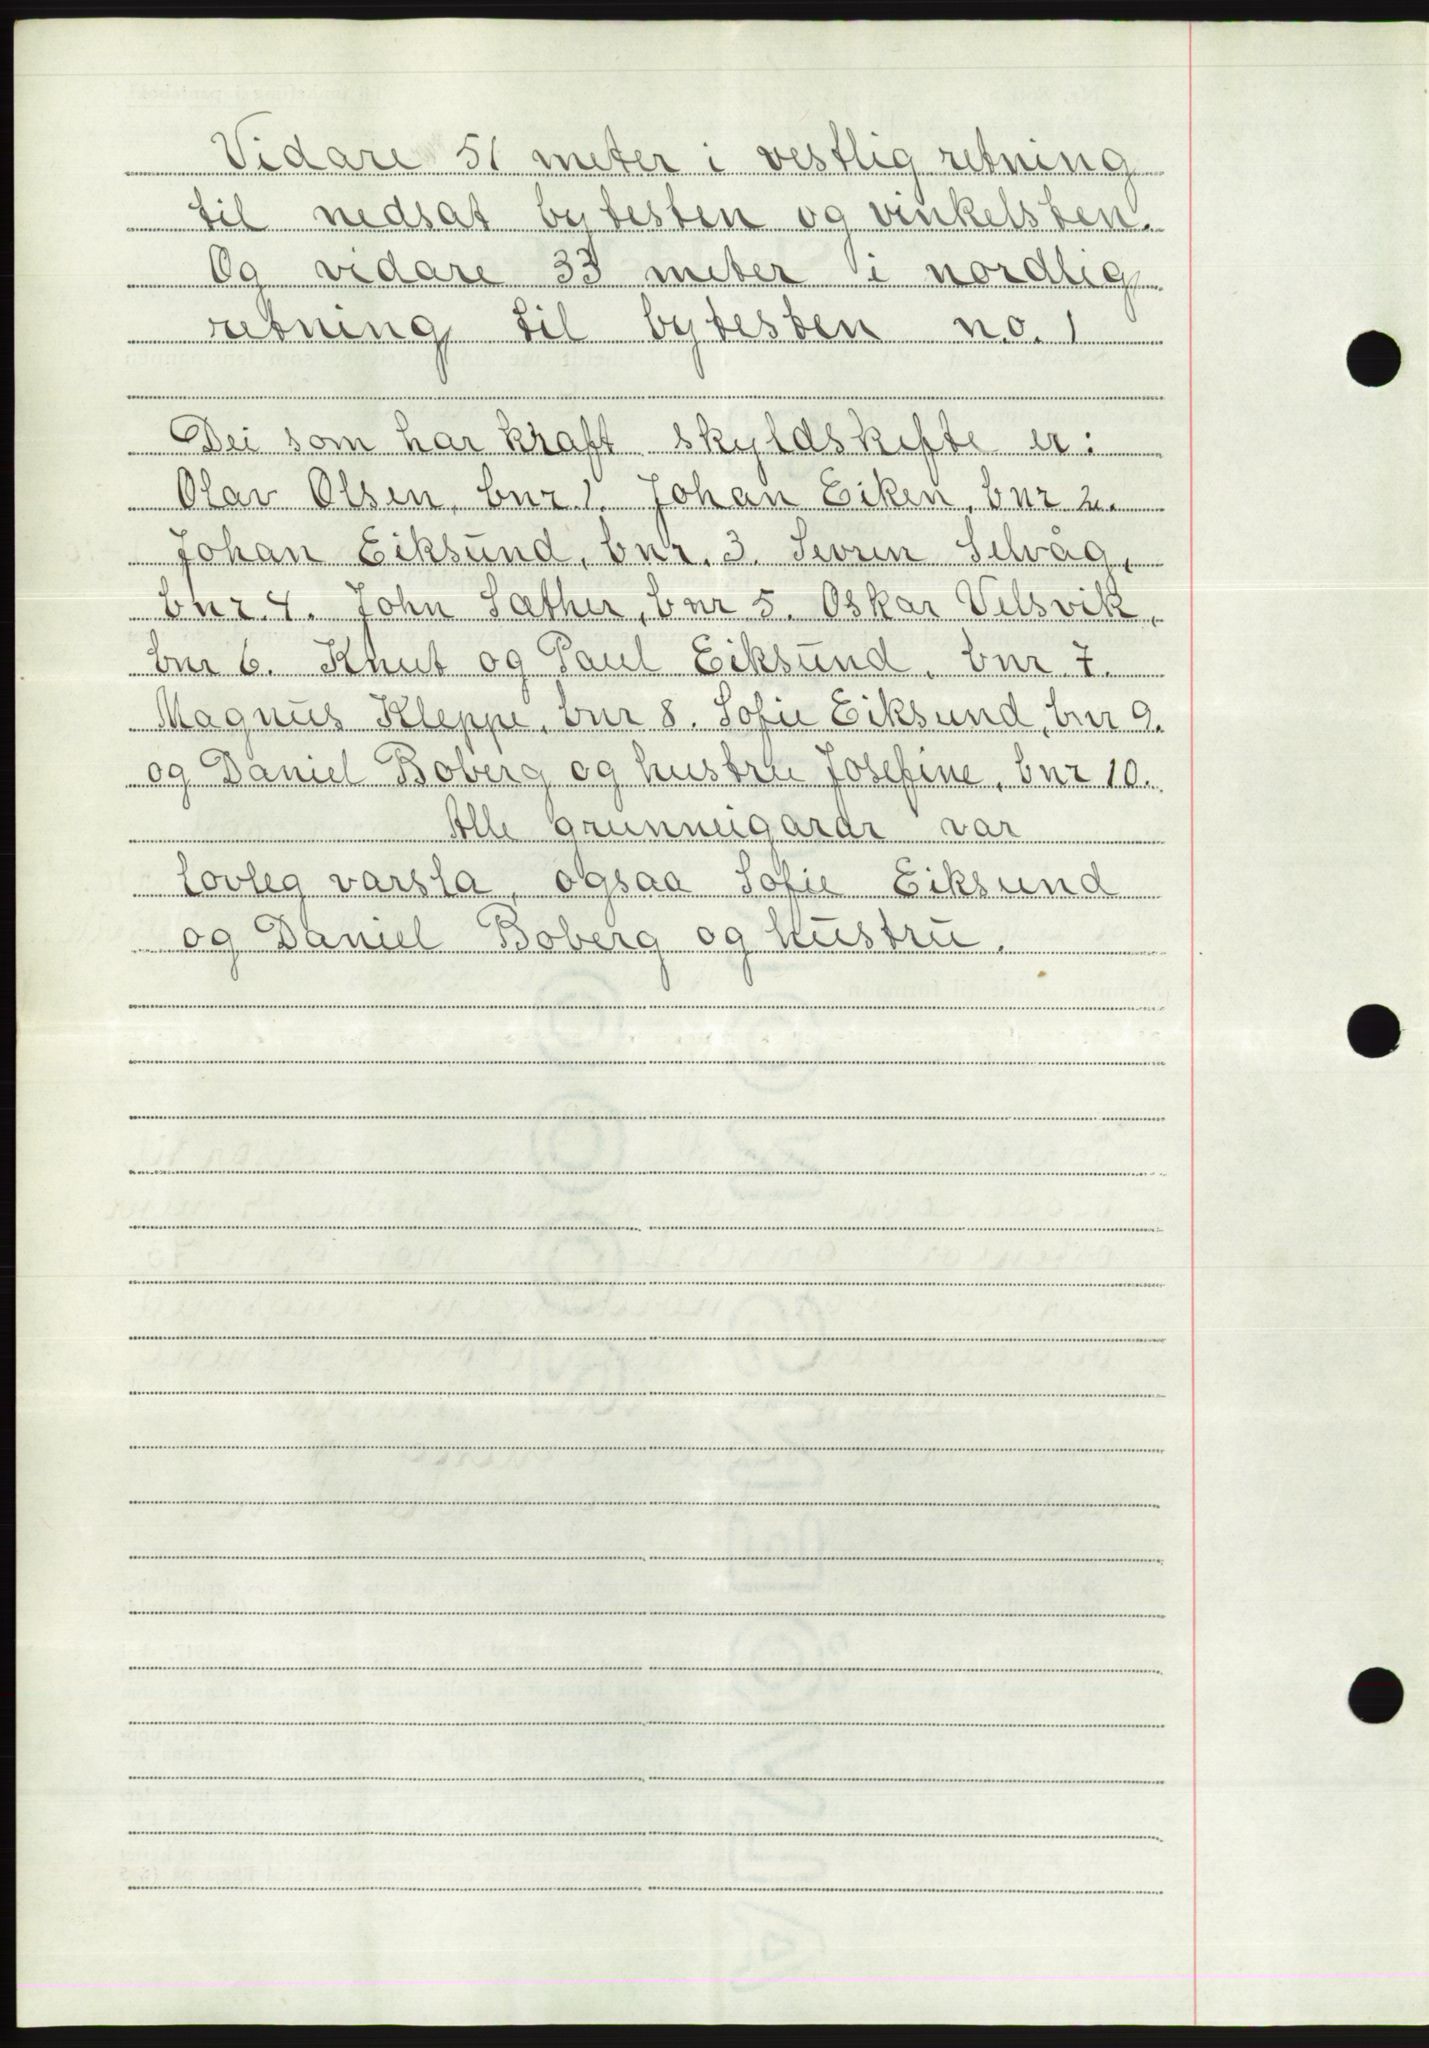 Vidare 51 meter i vestlig retning
til nedsat bytesten og vinkelsten.
Og vidare 33 meter i nordlig
retning til bytesten no. 1
Dei som har kraft skyldskifte er:
Olav Olsen, bnr. 1. Johan Eiken, bnr 2.
Johan Eiksund, bnr. 3. Sevren Selvåg,
bnr. 4. John Sæther, bnr 5. Oskar Velsvik,
bnr 6. Knut og Paul Eiksund, bnr. 7.
Magnus Kleppe, bnr 8. Sofie Eiksund, bnr 9.
og Daniel Boberg og hustru Josefine, bnr 10.
Alle grunneigarar var
lovleg varsla, ogsaa Sofie Eiksund
og Daniel Boberg og hustru.